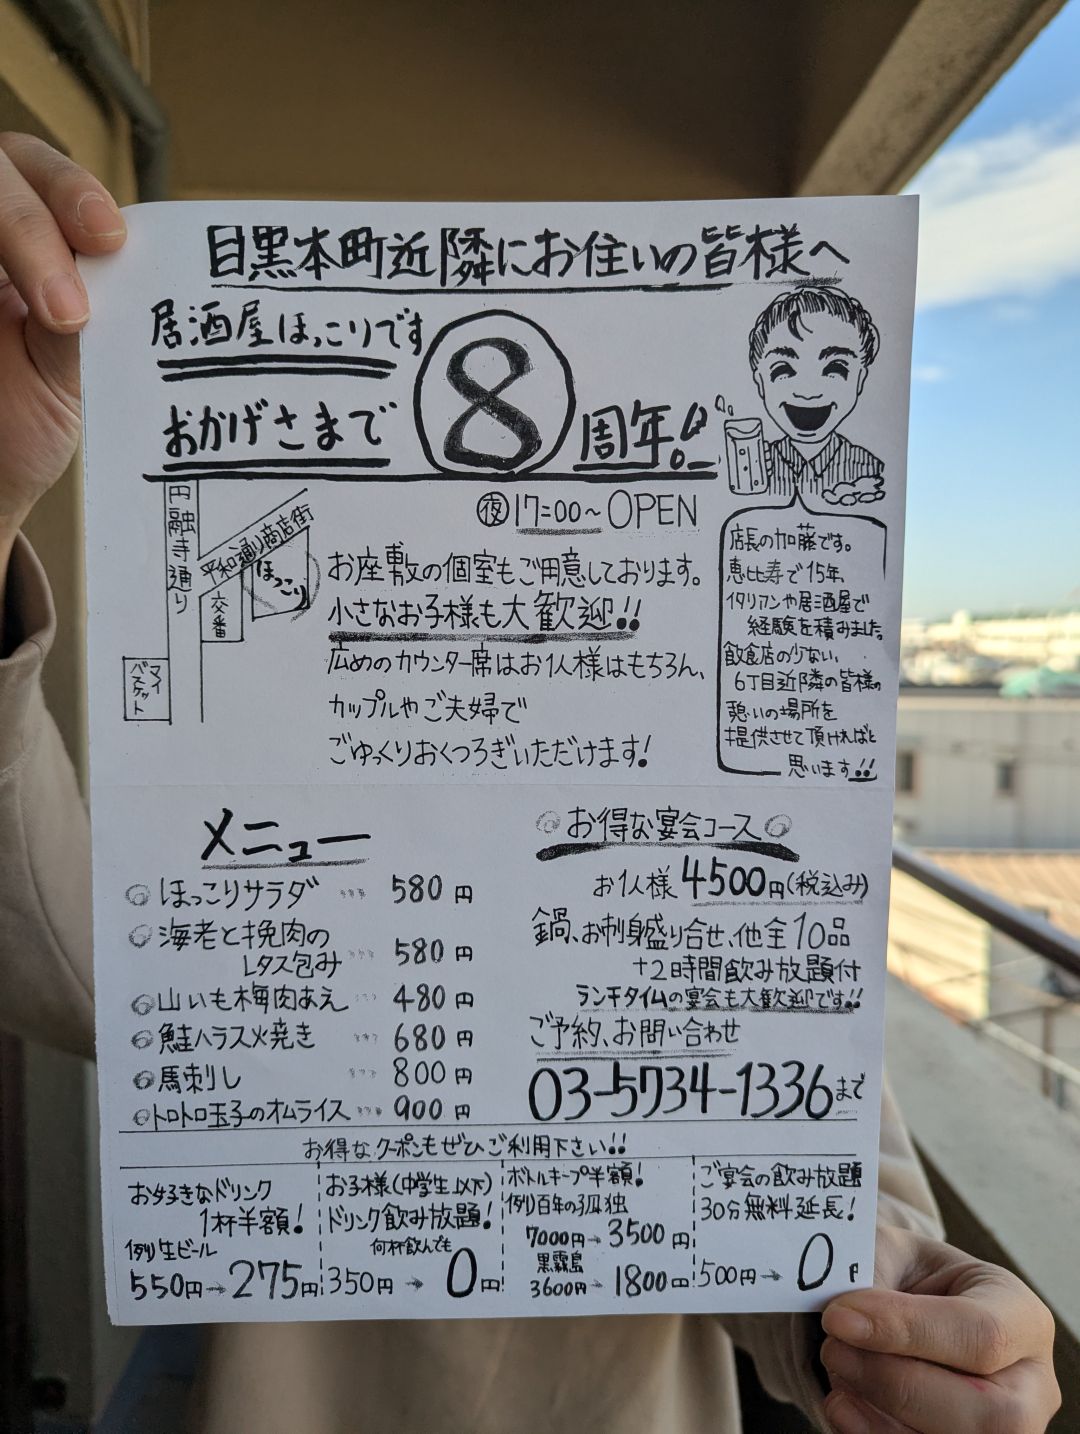 目黒本町近隣にお住いの皆様へ
居酒屋ほっこりです
おかげさまで
8
周年!!
夜 17:00~OPEN
円融寺通り
平和通り商店街
ほっこり
交番
マイバスケット
お座敷の個室もご用意しております。
小さなお子様も大歓迎!!
広めのカウンター席はお1人様はもちろん、
カップルやご夫婦で
ごゆっくりおくつろぎいただけます!
店長の加藤です。
恵比寿で15年、
イタリアンや居酒屋で
経験を積みました。
飲食店の少ない、
6丁目近隣の皆様の
憩いの場所を
提供させて頂ければと
思います!!
メニュー
ほっこりサラダ … 580円
海老と挽肉の
レタス包み … 580円
山いも梅肉あえ … 480円
鮭ハラス火焼き … 680円
馬刺し … 800円
トロトロ玉子のオムライス … 900円
お得な宴会コース
お1人様4500円(税込み)
鍋、お刺身盛り合せ、他全10品
+2時間飲み放題付
ランチタイムの宴会も大歓迎です!!
ご予約、お問い合わせ
03-5734-1336まで
お得なクーポンもぜひご利用下さい!!
お好きなドリンク
1杯半額!
例)生ビール
550円→275円
お子様(中学生以下)
ドリンク飲み放題!
何杯飲んでも
350円→0円
ボトルキープ半額!
例)百年の孤独
7000円→3500円
黒霧島
3600円→1800円
ご宴会の飲み放題
30分無料延長!
500円→0円